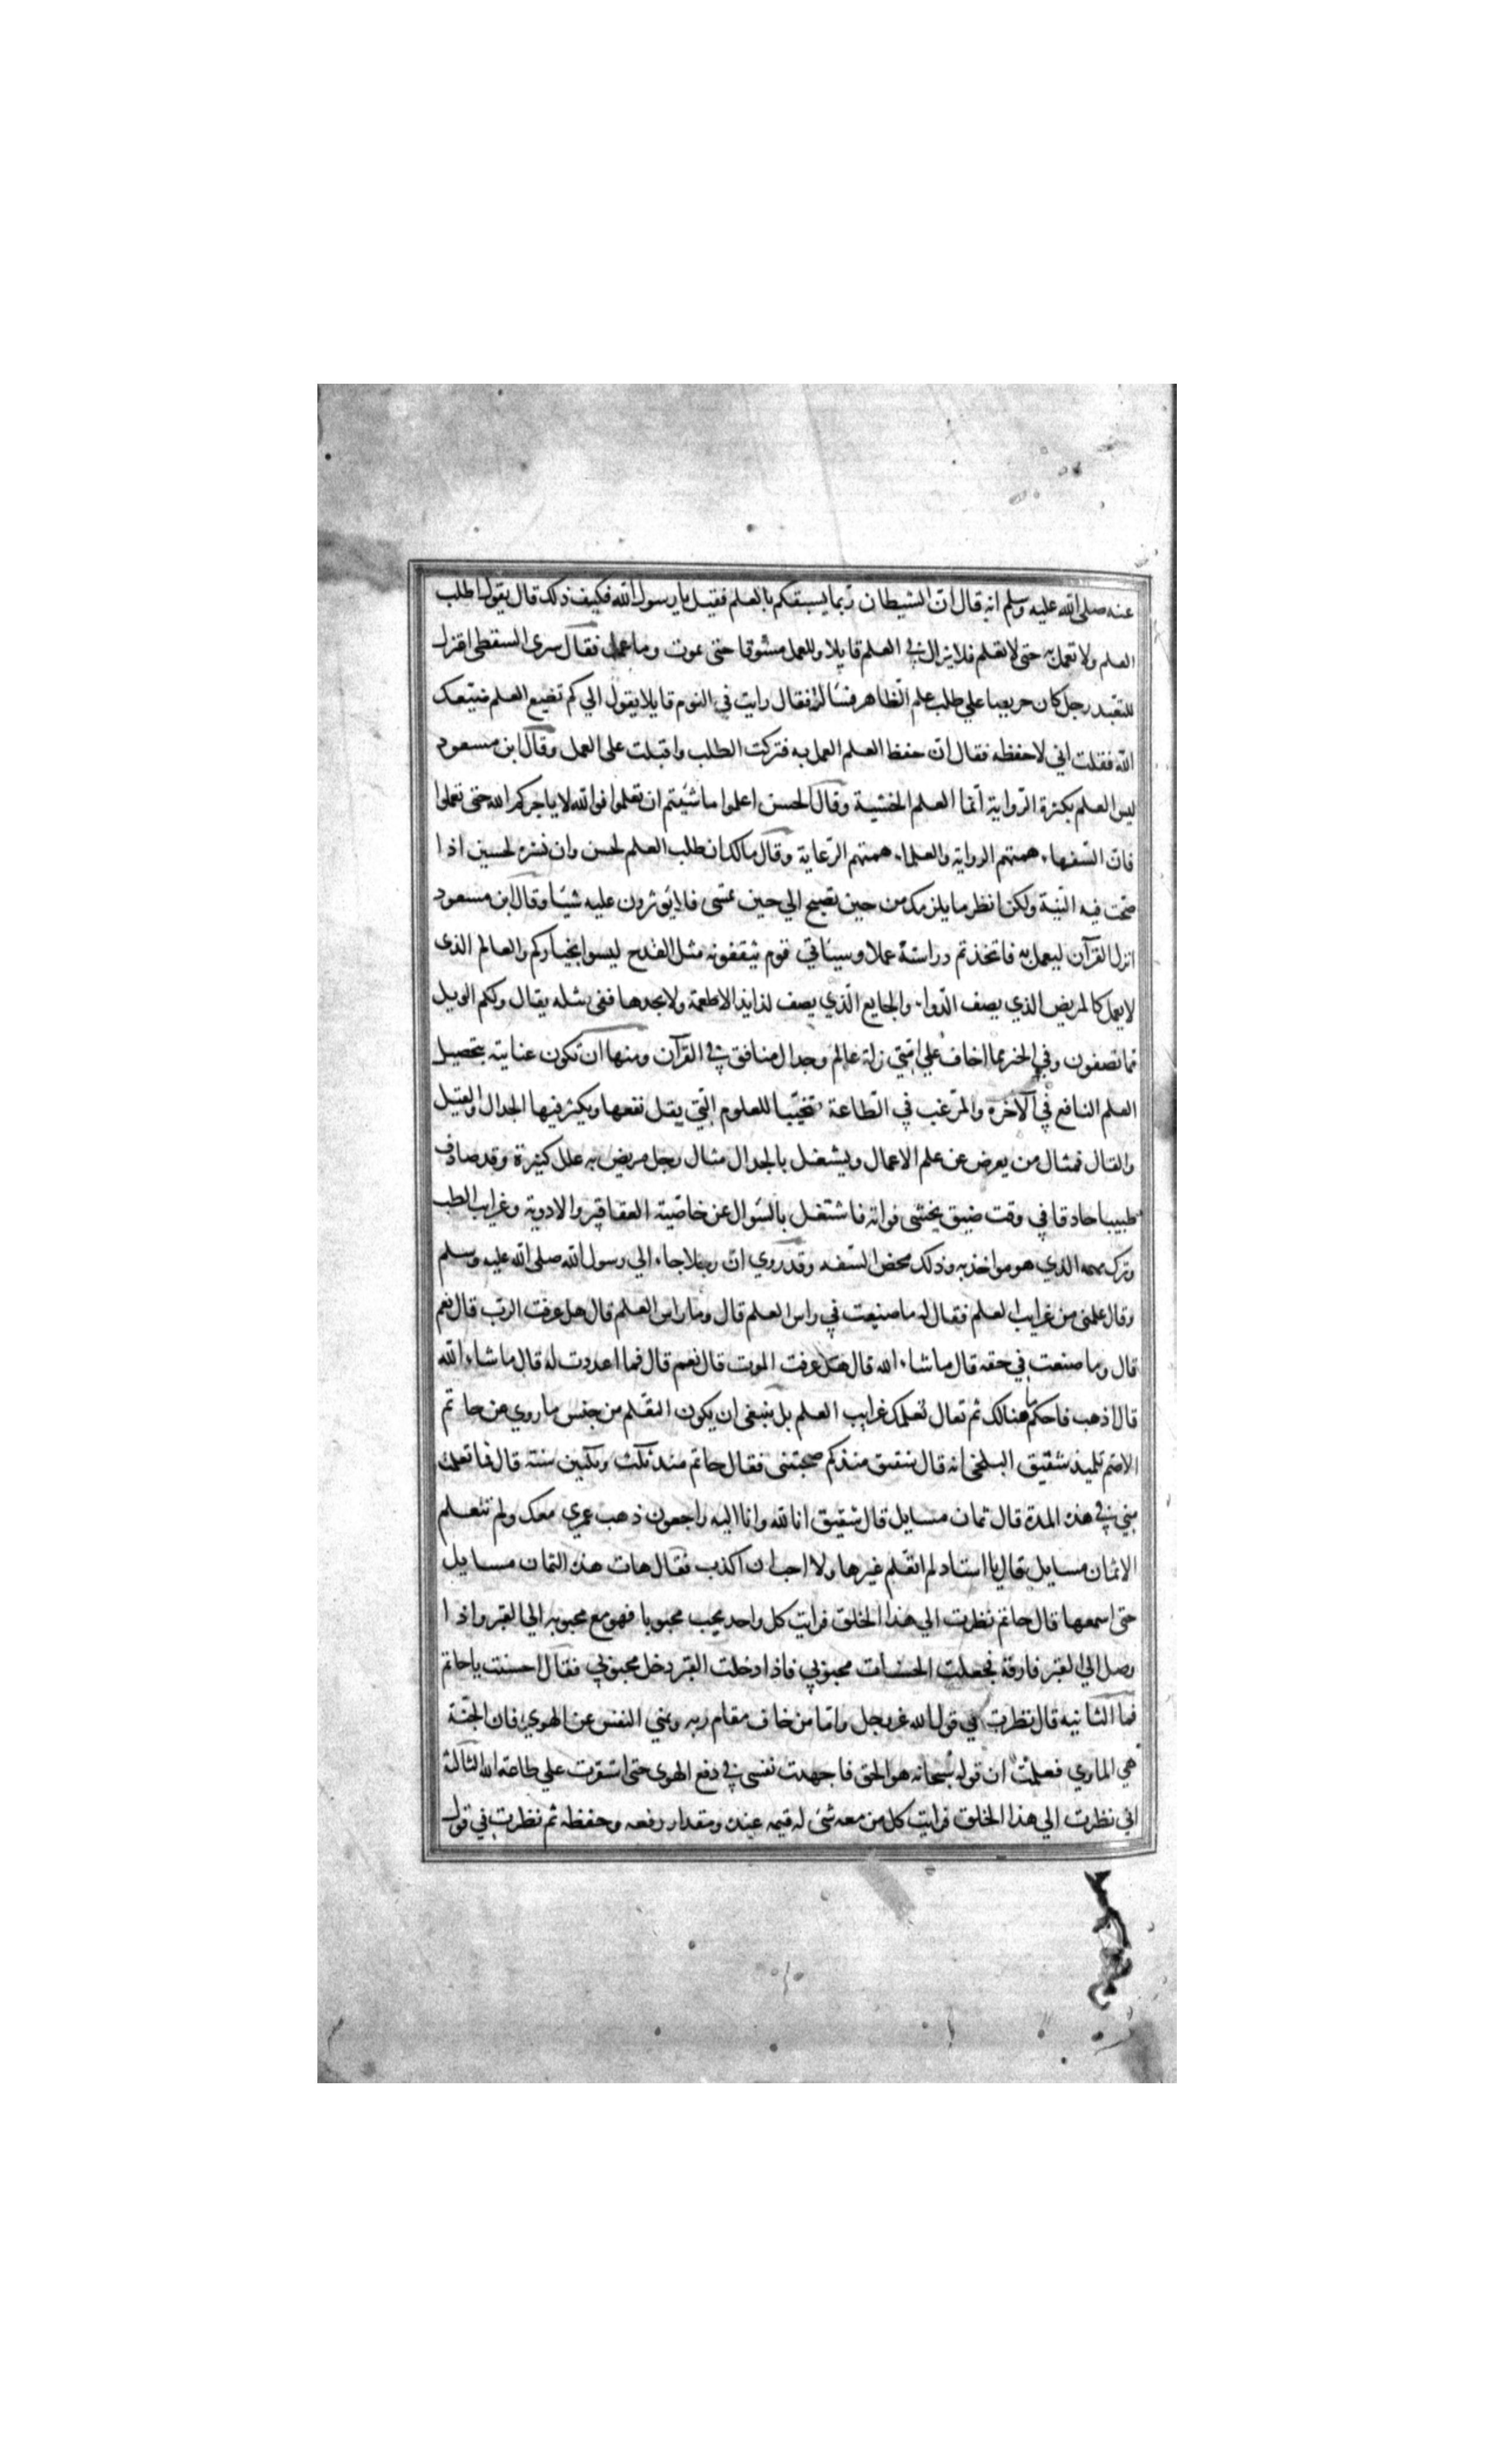 عنه صلى الله عليه وسلم انه قال ان الشيطان ربما يسبقكم بالعلم فقيل يا رسول الله فكيف ذلك قال يقول اطلب
العلم ولا تعمل به حتى لا تعلم فلا يزال في العلم قايلا وللعمل مسوقا حتى يموت وما عمل فقال سرى السقطى اعتزل
للتعبد رجل كان حريصا علي طلب علم الظاهر فسالته فقال رايت في النوم قايلا يقول الي كم تضيع العلم ضيعك
الله فقلت اني لاحفظه فقال ان حفظ العلم العمل به فتركت الطلب واقبلت على العمل وقال ابن مسعود
ليس العلم بكثرة الرواية انما العلم الخشية وقال الحسن اعلموا ما شيتم ان تعلموا فوالله لا ياجركم الله حتى تعملوا
فان السفهاء همتهم الرواية والعلماء همتهم الرعاية وقال مالك ان طلب العلم لحسن وان نشره لحسن اذا
صحت فيه النية ولكن انظر ما يلزمك من حين تصبح الي حين تمسى فلا يؤثرون عليه شيئا وقال ابن مسعود
انزل القرآن ليعمل به فاتخذتم دراسته عملا وسياتي قوم يثقفونه مثل القدح ليسوا بخياركم والعالم الذى
لا يعمل كالمريض الذي يصف الدواء والجايع الذي يصف لذايذ الاطعمة ولا يجدها ففى مثله يقال ولكم الويل
مما تصفون وفي الخبر مما اخاف علي امتي زلة عالم وجدال منافق في القرآن ومنها ان تكون عنايته بتحصيل
العلم النافع في الآخرة والمرغب في الطاعة متجنبا للعلوم التي يقل نفعها ويكثر فيها الجدال والقيل
والقال فمثال من يعرض عن علم الاعمال ويشتغل بالجدال مثال رجل مريض به علل كثيرة وقد صادف
طبيبا حاذقا في وقت ضيق يخشى فواته فاشتغل بالسوال عن خاصية العقاقير والادوية وغرايب الطب
وترك مهمه الذي هو مواخذ به وذلك محض السفه وقد روي ان رجلا جاء الي رسول الله صلى الله عليه وسلم
وقال علمنى من غرايب العلم فقال له ما صنعت في راس العلم قال وما راس العلم قال هل عرفت الرب قال نعم
قال وما صنعت في حقه قال ما شاء الله قال هل عرفت الموت قال نعم قال فما اعددت له قال ما شاء الله
قال اذهب فاحكم ما هنالك ثم تعال نعلمك غرايب العلم بل ينبغى ان يكون التعلم من جنس ما روي عن حاتم
الاصم تلميذ شقيق البلخى انه قال شقيق منذ كم صحبتنى فقال حاتم منذ ثلث وثلثين سنة قال فما تعلمت
مني في هذه المدة قال ثمان مسايل قال شقيق انا لله وانا اليه راجعون ذهب عمري معك ولم تتعلم
الا ثمان مسايل قال يا استاد لم اتعلم غيرها ولا احب ان اكذب فقال هات هذه الثمان مسايل
حتى اسمعها قال حاتم نظرت الي هذا الخلق فرايت كل واحد يحب محبوبا فهو مع محبوبه الي القبر واذا
وصل الي القبر فارقه فجعلت الحسنات محبوبي فاذا دخلت القبر دخل محبوبي فقال احسنت يا حاتم
فما الثانيه قال نظرت في قول الله عز وجل واما من خاف مقام ربه ونهي النفس عن الهوي فان الجنة
هي الماوي فعلمت ان قوله سبحانه هو الحق فاجهدت نفسى في دفع الهوى حتى استقرت علي طاعة الله الثالثة
اني نظرت الي هذا الخلق فرايت كل من معه شئ له قيمه عنده ومقدار رفعه وحفظه ثم نظرت في قول